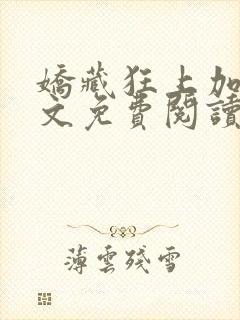 嬌藏狂上加
文免費閱讀
薄雲殘雪